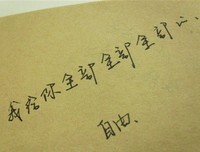 我给你全部全部全部心
自由.